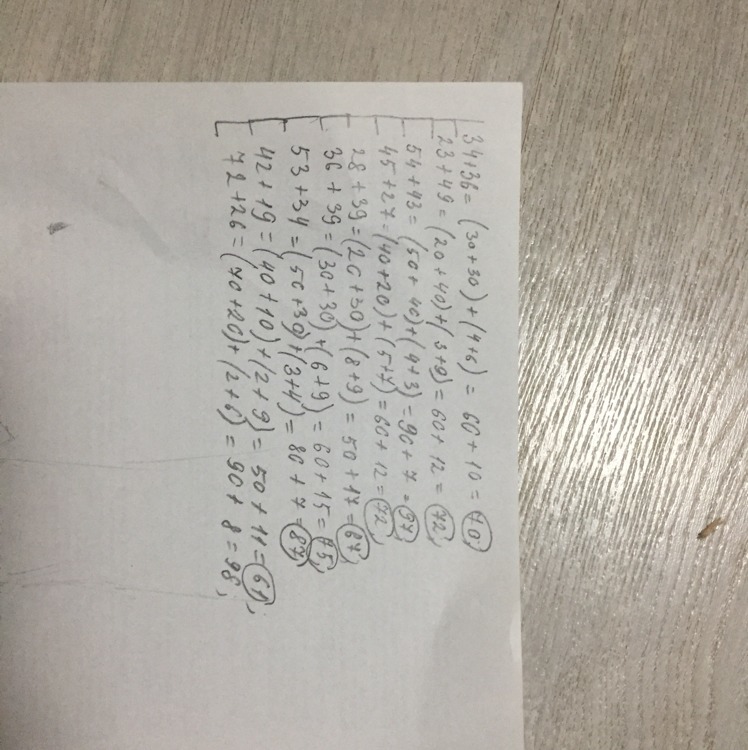 34+36=(30+30)+(4+6)=60+10=70)
23+49=(20+40)+(3+9)=60+12=72,
54+43=(50+40)+(4+3)=90+7=97,
45+27=(40+20)+(5+7)=60+12=72,
28+39=(20+30)+(8+9)=50+17=67,
36+39=(30+30)+(6+9)=60+15=75,
53+34=(50+30)+(3+4)=80+7=87,
42+19=(40+10)+(2+9)=50+11=61,
72+26=(70+20)+(2+6)=90+8=98,